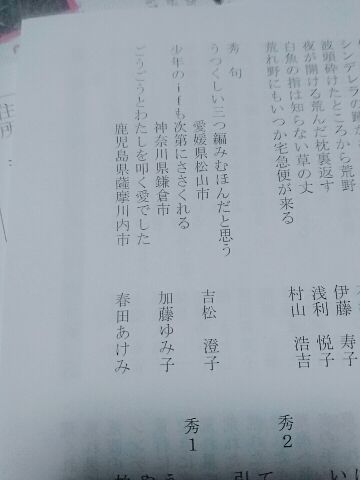 波頭砕けたところから荒野 伊藤 寿子
夜が開ける荒んだ枕裏返す 浅利 悦子
白魚の指は知らない草の丈 村山 浩吉
荒れ野にもいつか宅急便が来る
秀2
秀 句
うつくしい三つ編みむほんだと思う
愛媛県松山市 吉松 澄子
少年のifも次第にささくれる
神奈川県鎌倉市 加藤ゆみ子
秀1
ごうごうとわたしを叩く愛でした
鹿児島県薩摩川内市 春田あけみ
住所